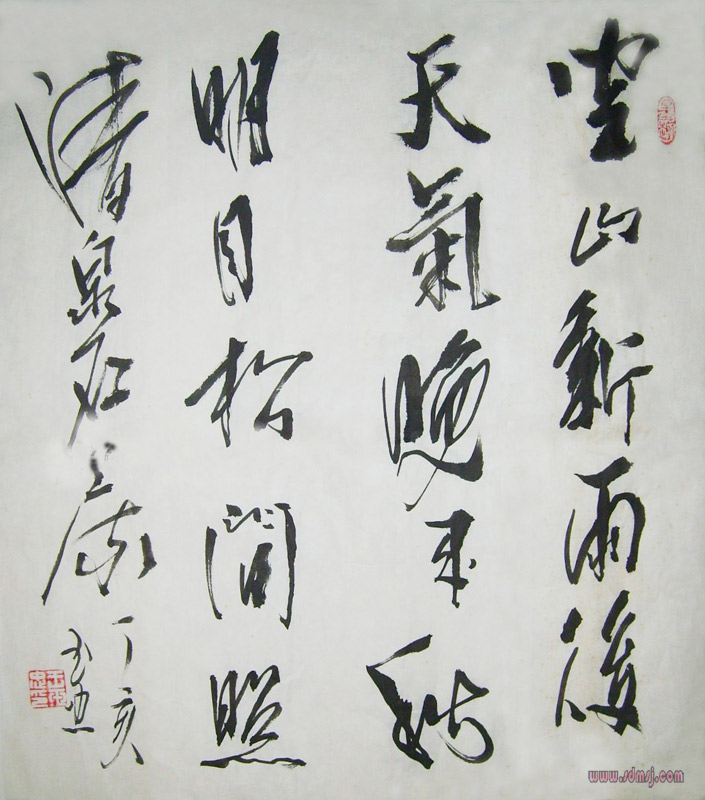 空山新雨後
天氣晚来秋
明月松間照
清泉石上流
丁亥
www.sdmsj.com